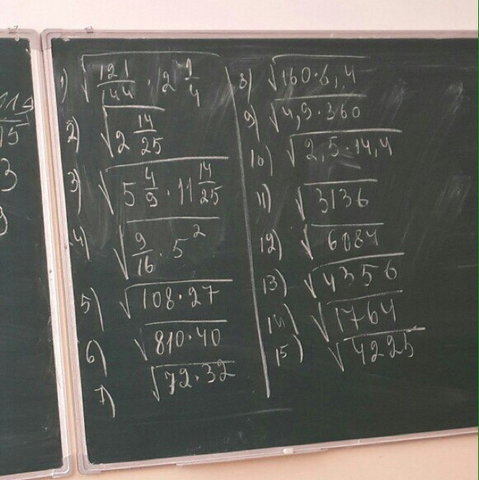 1) √(121/144 · 2 1/4)
2) √(2 14/25)
3) √(5 4/9 · 11 14/25)
4) √(9/16 · 5²)
5) √(108·27)
6) √(810·40)
7) √(72·32)
8) √(160·6,4)
9) √(4,9·360)
10) √(2,5·14,4)
11) √3136
12) √6084
13) √4356
14) √1764
15) √4225